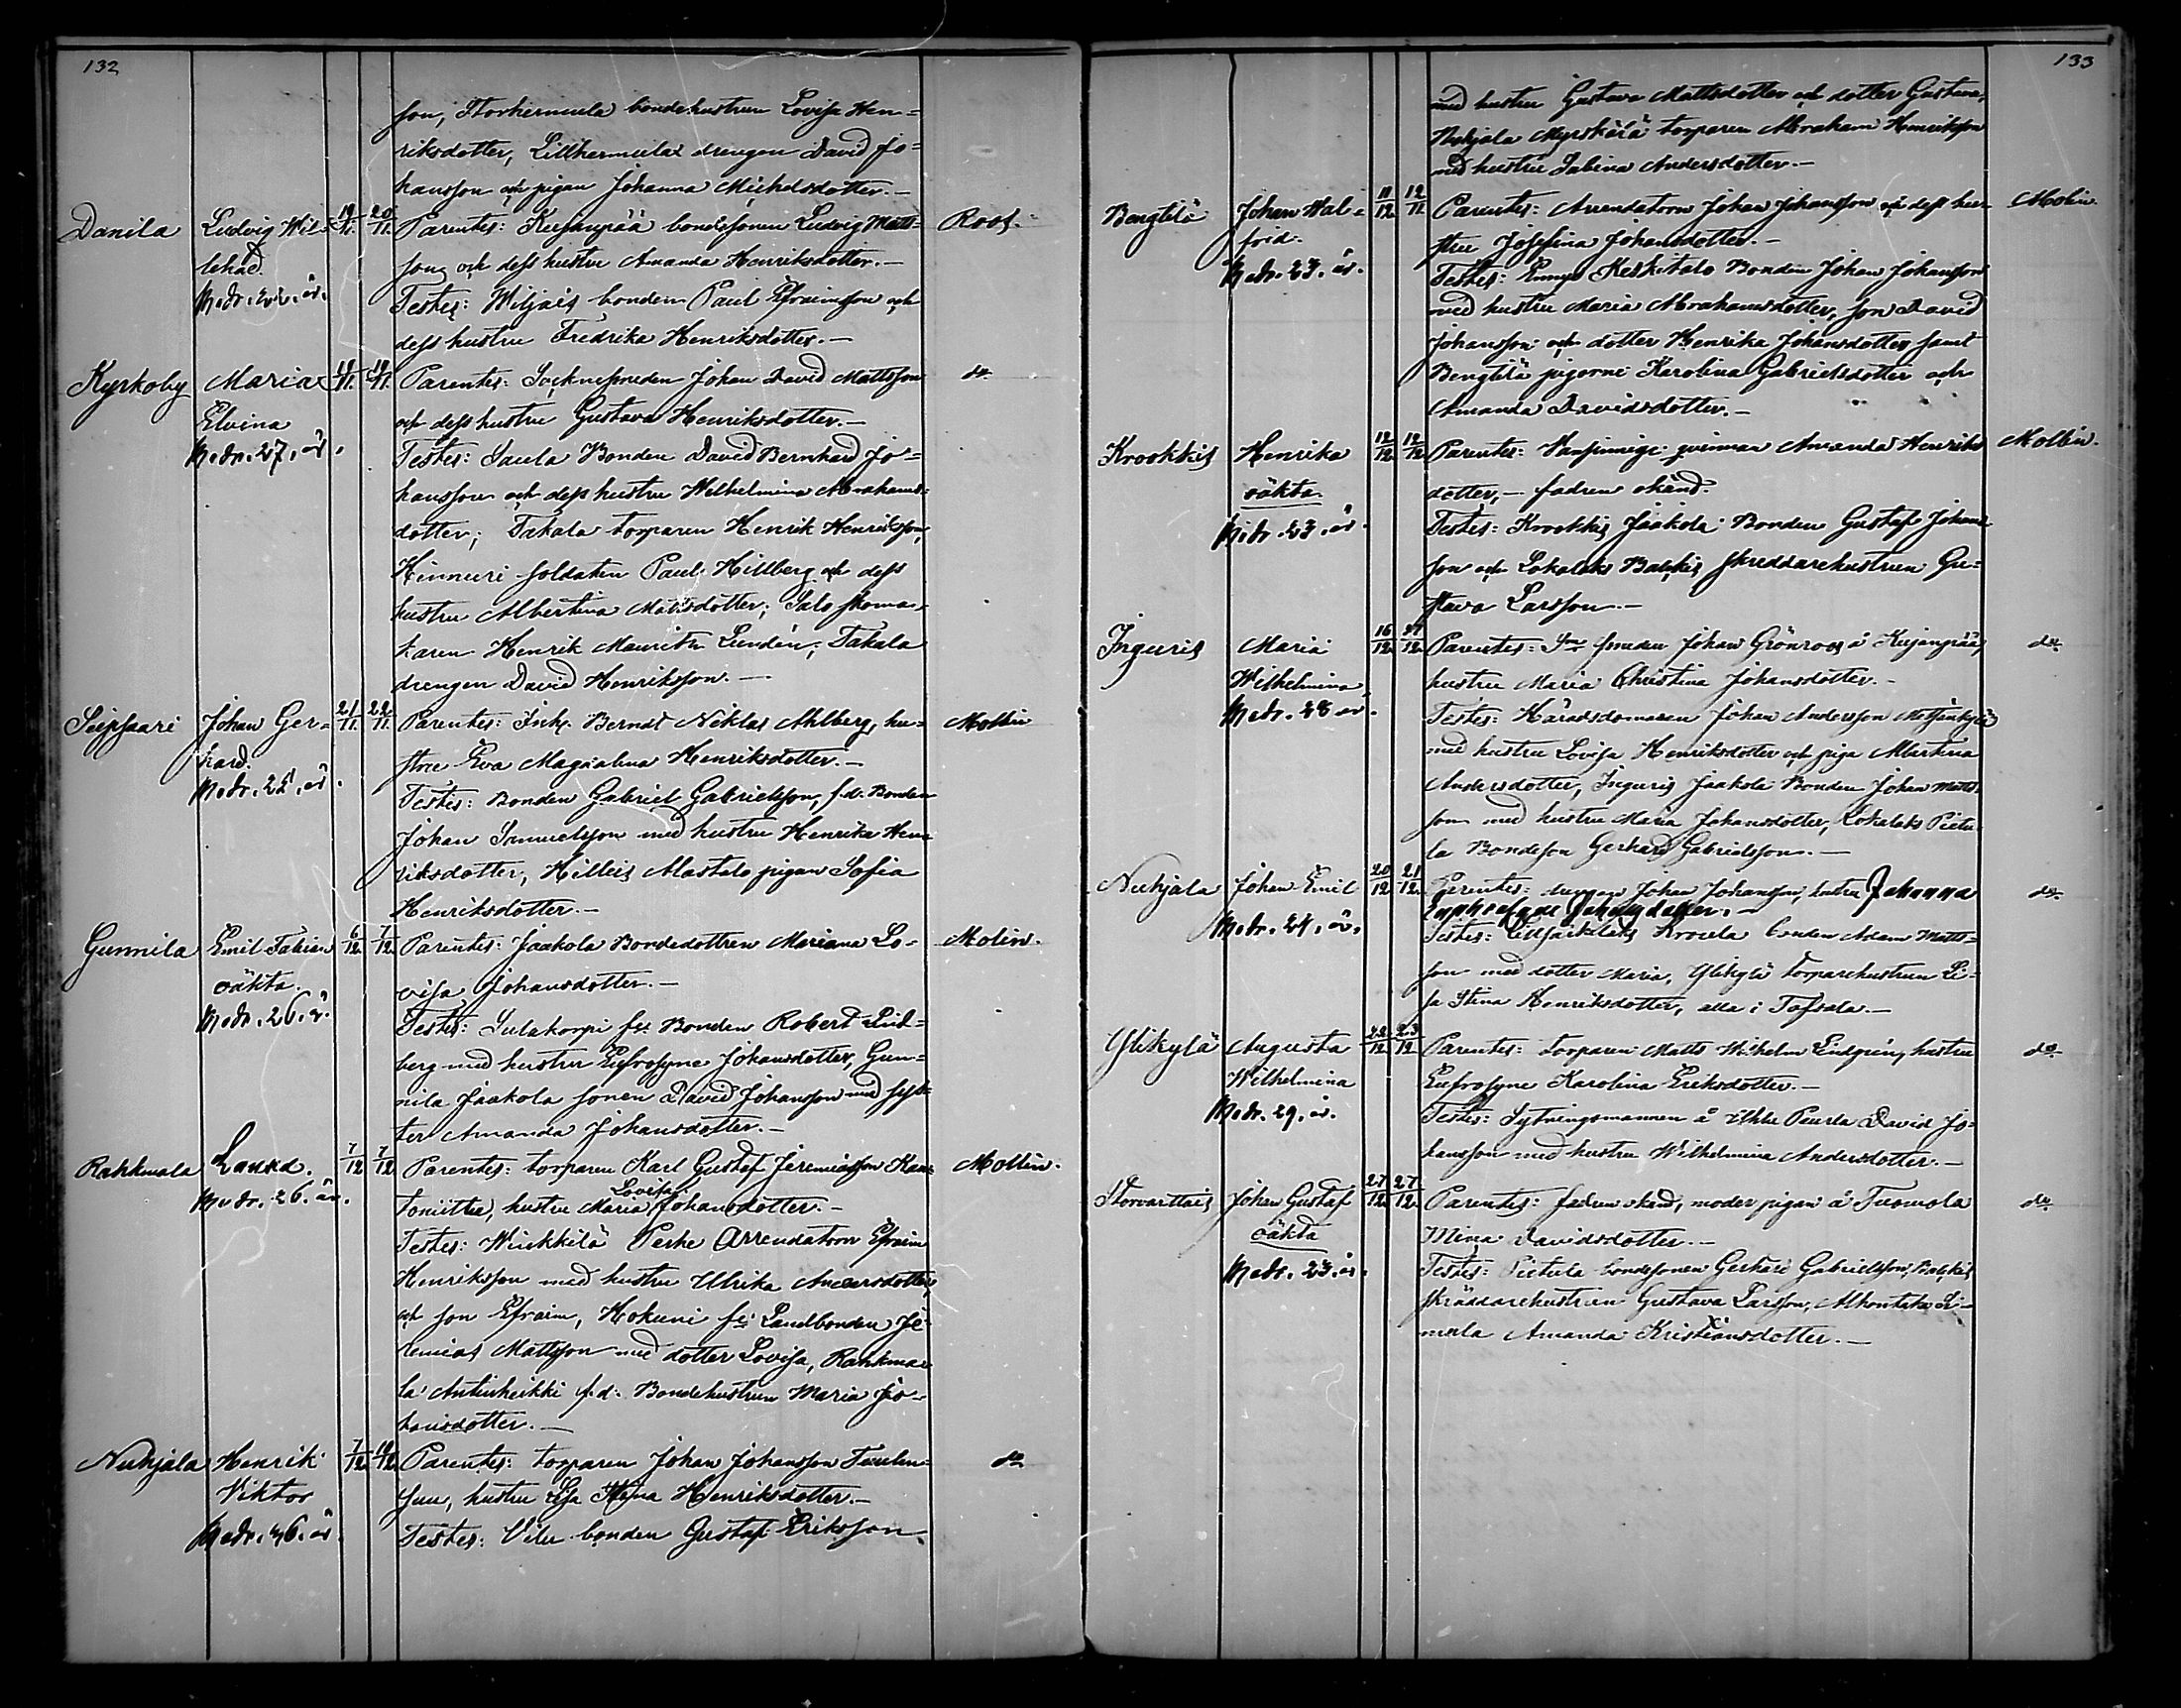 132
son, Storhermula bondehustrun Lovisa Hen=
riksdotter, Lillhermula drengen David Jo=
hansson och pigan Johanna Michelsdotter.-
Danila Ludvig Wil= 19/11. 20/11. Parentes: Kujanpää bondesonen Ludvig Matts= Roos.
lehad. son och dess hustru Amanda Henriksdotter.-
M.dr. 22. år. Testes: Wiljais bonden Paul Efraimsson och
dess hustru Fredrika Henriksdotter.-
Kyrkoby Maria 19/11. Parentes: Socknesmeden Johan David Mattsson do
Elvina och dess hustru Gustava Henriksdotter.-
M.dr. 27. år. Testes: Saula Bonden David Bernhard Jo=
hansson och dess hustru Wilhelmina Abrahams=
dotter; Takala torparen Henrik Henriksson,
Hinnuri soldaten Paul Hillberg och dess
hustru Albertina Mattsdotter; Salo skoma=
karen Henrik Mauritz Lundén; Takala
drengen David Henriksson.-
Seipsaari Johan Ger= 21/11. 22/11. Parentes: Inh. Berndt Niklas Ahlberg, hu= Mollin
hard. stru Eva Magdalena Henriksdotter.-
M.dr. år. Testes: Bonden Gabriel Gabrielsson, f.d. Bonden
Johan Samuelsson med hustru Henrika Hen=
riksdotter, Hilleis Alastalo pigan Sofia
Henriksdotter.-
Gunnila Emil Fabian 6/12. 7/12. Parentes: Jaakola Bondedottren Mariana Lo= Molin.
oäkta. visa Johansdotter.-
M.dr. 26. år. Testes: Sulakorpi fd Bonden Robert Lind=
berg med hustru Eufrosyne Johansdotter, Gun=
nila Jaakola sonen David Johansson med sys=
ter Amanda Johansdotter.-
Rahkmala Laura. 7/12 7/12 Parentes: torparen Karl Gustaf Jeremiasson Kan= Mollin.
M.dr. 26. år. tomitta, hustru Maria Lovisa Johansdotter.-
Testes: Winkkilä Perho Arrendatorn Efraim
Henriksson med hustru Ulrika Andersdotter,
och son Efraim, Hokuni fd Landbonden Je=
remias Mattsson med dotter Lovisa, Rahkma=
la Antinheikki f.d. Bondehustrun Maria Jo=
hansdotter.-
Nuhjala Henrik 7/12. 10/12. Parentes: torparen Johan Johansson Tuulen= do
Viktor suu, hustru Lisa Stina Henriksdotter.-
M.dr. 36. år. Testes: Vilu bonden Gustaf Eriksson
133
med hustru Gustava Mattsdotter och dotter Gustava,
Nuhjala Myrskärä torparen Abraham Henriksson
med hustru Sabina Andersdotter.-
Bengtilä Johan Wal= 11/12 Parentes: Arrendatorn Johan Johansson och dess hu= Molin.
frid. stru Josefina Johansdotter.-
M.dr. 23. år. Testes: Keskitalo Bonden Johan Johansson
med hustru Maria Abrahamsdotter, son David
Johansson och dotter Henrika Johansdotter, samt
Bengtilä pigorne Karolina Gabrielsdotter och
Amanda Davidsdotter.-
Krookkis Henrika 12/12 12/12 Parentes: Vansinniga qvinnan Amanda Henriks Mollin.
oäkta dotter, - fadren okänd.
M.dr. 23. år. Testes: Krookkis Jaakola Bonden Gustaf Johans
son och Lokalaks Backis skreddarehustrun Gu=
stava Larsson.-
Inguris Maria 16/12 27/12. Parentes: smeden Johan Grönroos å Kujanpää, do
Wilhelmina, hustru Maria Christina Johansdotter.-
M.dr. 28 år. Testes: Häradsdomaren Johan Andersson
med hustru Lovisa Henriksdotter och piga Albertina
Andersdotter, Inguris Jaakola Bonden Johan Matts=
son med hustru Maria Johansdotter, Lokalaks Pietu=
la Bondeson Gerhard Gabrielsson.-
Nuhjala Johan Emil 20/12 21/12. Parentes: Johan Johansson, hustru Johanna do
M.dr. 24. år. Euphrosyne Johansdotter.-
Testes: Krouela bonden Adam Matts=
son med dotter Maria, Ylikylä torparehustrun Li=
sa Stina Henriksdotter, alla i Tofsala.-
Ylikylä Augusta 22/12 23/12 Parentes: torparen Matts Wilhelm Lindgrén, hustru do
Wilhelmina Eufrosyne Karolina Eriksdotter.-
M.dr. 29. år. Testes: Sytningsmannen å Uhlu Peurla David Jo=
hansson med hustru Wilhelmina Andersdotter.-
Storvarttais Johan Gustaf 27/12 27/12. Parentes: fadren okänd, moder pigan å Tuomola do
oäkta Mina Davidsdotter.-
M.dr. 23. år. Testes: Pietula bondesonen Gerhard Gabrielsson, Backis
skräddarehustrun Gustava Larsson, Alhontaka Si=
mula Amanda Kristiansdotter.-